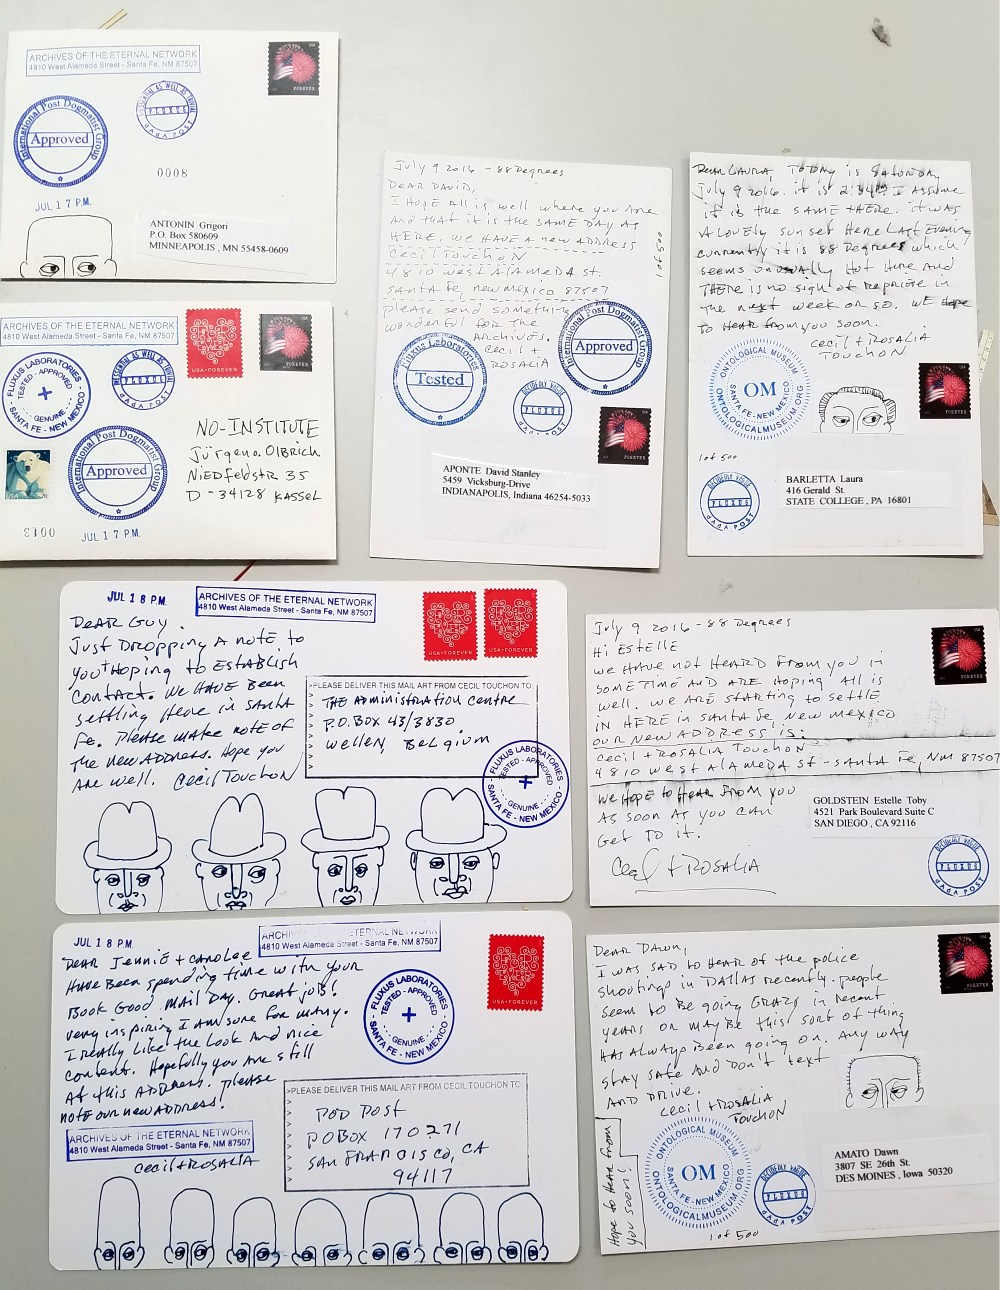 ARCHIVES OF THE ETERNAL NETWORK
4810 West Alameda Street - Santa Fe, NM 87507
USA
FOREVER
International Post Dogmatist Group
Approved
ESSENTIAL AS WELL AS TRIVIAL
FLUXUS
dAdA POST
0008
JUL 17 P.M.
ANTONIN Grigori
P.O. Box 580609
MINNEAPOLIS, MN 55458-0609
ARCHIVES OF THE ETERNAL NETWORK
4810 West Alameda Street - Santa Fe, NM 87507
USA FOREVER
FOREVER
FLUXUS LABORATORIES
TESTED - APPROVED
GENUINE
SANTA FE - NEW MEXICO
ESSENTIAL AS WELL AS TRIVIAL
FLUXUS
dAdA POST
International Post Dogmatist Group
Approved
USA
NO-INSTITUTE
Jürgen O. Olbrich
Niedfeldstr 35
D-34128 KASSEL
0013
JUL 17 P.M.
July 9 2016 - 88 Degrees
Dear David,
I hope all is well where you are
and that it is the same day as
here. We have a new address
Cecil Touchon
4810 West Alameda St.
Santa Fe, New Mexico 87507
Please send something
wonderful for the
Archives.
Cecil +
Rosalia
1 of 500
Fluxus Laboratories
Tested
International Post Dogmatist Group
Approved
DECIDEDLY VAGUE
FLUXUS
dAdA POST
USA
FOREVER
APONTE David Stanley
5459 Vicksburg-Drive
INDIANAPOLIS, Indiana 46254-5033
Dear Laura, Today is Saturday
July 9 2016. it is 2:34 I assume
it is the same there. it was
a lovely sunset here last evening
currently it is 88 Degrees which
seems unusually hot here and
there is no sign of reprieve in
the next week or so. We hope
to hear from you soon.
Cecil + Rosalia
Touchon
ONTOLOGICAL MUSEUM
ONTOLOGICALMUSEUM.ORG
OM
SANTA FE - NEW MEXICO
USA
FOREVER
1 of 500
DECIDEDLY VAGUE
FLUXUS
dAdA POST
BARLETTA Laura
416 Gerald St.
STATE COLLEGE, PA 16801
JUL 18 P.M.
ARCHIVES OF THE ETERNAL NETWORK
4810 West Alameda Street - Santa Fe, NM 87507
USA FOREVER
USA FOREVER
Dear Guy,
Just dropping a note to
you + hoping to establish
contact. We have been
settling here in Santa
Fe. Please make note of
the new address. Hope you
are well. Cecil Touchon
>PLEASE DELIVER THIS MAIL ART FROM CECIL TOUCHON TO:
The Administration Centre
P.O. Box 43/3830
Wellen, Belgium
FLUXUS LABORATORIES
TESTED - APPROVED
GENUINE
SANTA FE - NEW MEXICO
July 9 2016 - 88 Degrees
Hi Estelle
We have not heard from you in
sometime and are hoping all is
well. We are starting to settle
in here in Santa Fe, New Mexico
our new address is:
Cecil + Rosalia Touchon
4810 West Alameda St - Santa Fe, NM 87507
We hope to hear from you
as soon as you can
get to it.
Cecil + Rosalia
FOREVER
GOLDSTEIN Estelle Toby
4521 Park Boulevard Suite C
SAN DIEGO, CA 92116
DECIDEDLY VAGUE
FLUXUS
dAdA POST
JUL 18 P.M.
ARCHIVES OF THE ETERNAL NETWORK
4810 West Alameda Street - Santa Fe, NM 87507
USA FOREVER
Dear Jennie + Carolee
Have been spending time with your
book Good Mail Day. Great job!
very inspiring I am sure for many.
I really like the look and nice
content. Hopefully you are still
at this address. Please
note our new address!
FLUXUS LABORATORIES
TESTED - APPROVED
GENUINE
SANTA FE - NEW MEXICO
ARCHIVES OF THE ETERNAL NETWORK
4810 West Alameda Street - Santa Fe, NM 87507
Cecil + Rosalia
>PLEASE DELIVER THIS MAIL ART FROM CECIL TOUCHON TO:
POD POST
PO BOX 170271
SAN FRANCISCO, CA
94117
Dear Dawn,
I was sad to hear of the police
shootings in Dallas recently. People
seem to be going crazy in recent
years or maybe this sort of thing
has always been going on. Any way
stay safe and don't text
and drive.
Cecil + Rosalia
Touchon
USA
FOREVER
Hope to hear from
you soon!
ONTOLOGICAL MUSEUM
ONTOLOGICALMUSEUM.ORG
OM
SANTA FE - NEW MEXICO
1 of 500
DECIDEDLY VAGUE
FLUXUS
dAdA POST
AMATO Dawn
3807 SE 26th St.
DES MOINES, Iowa 50320